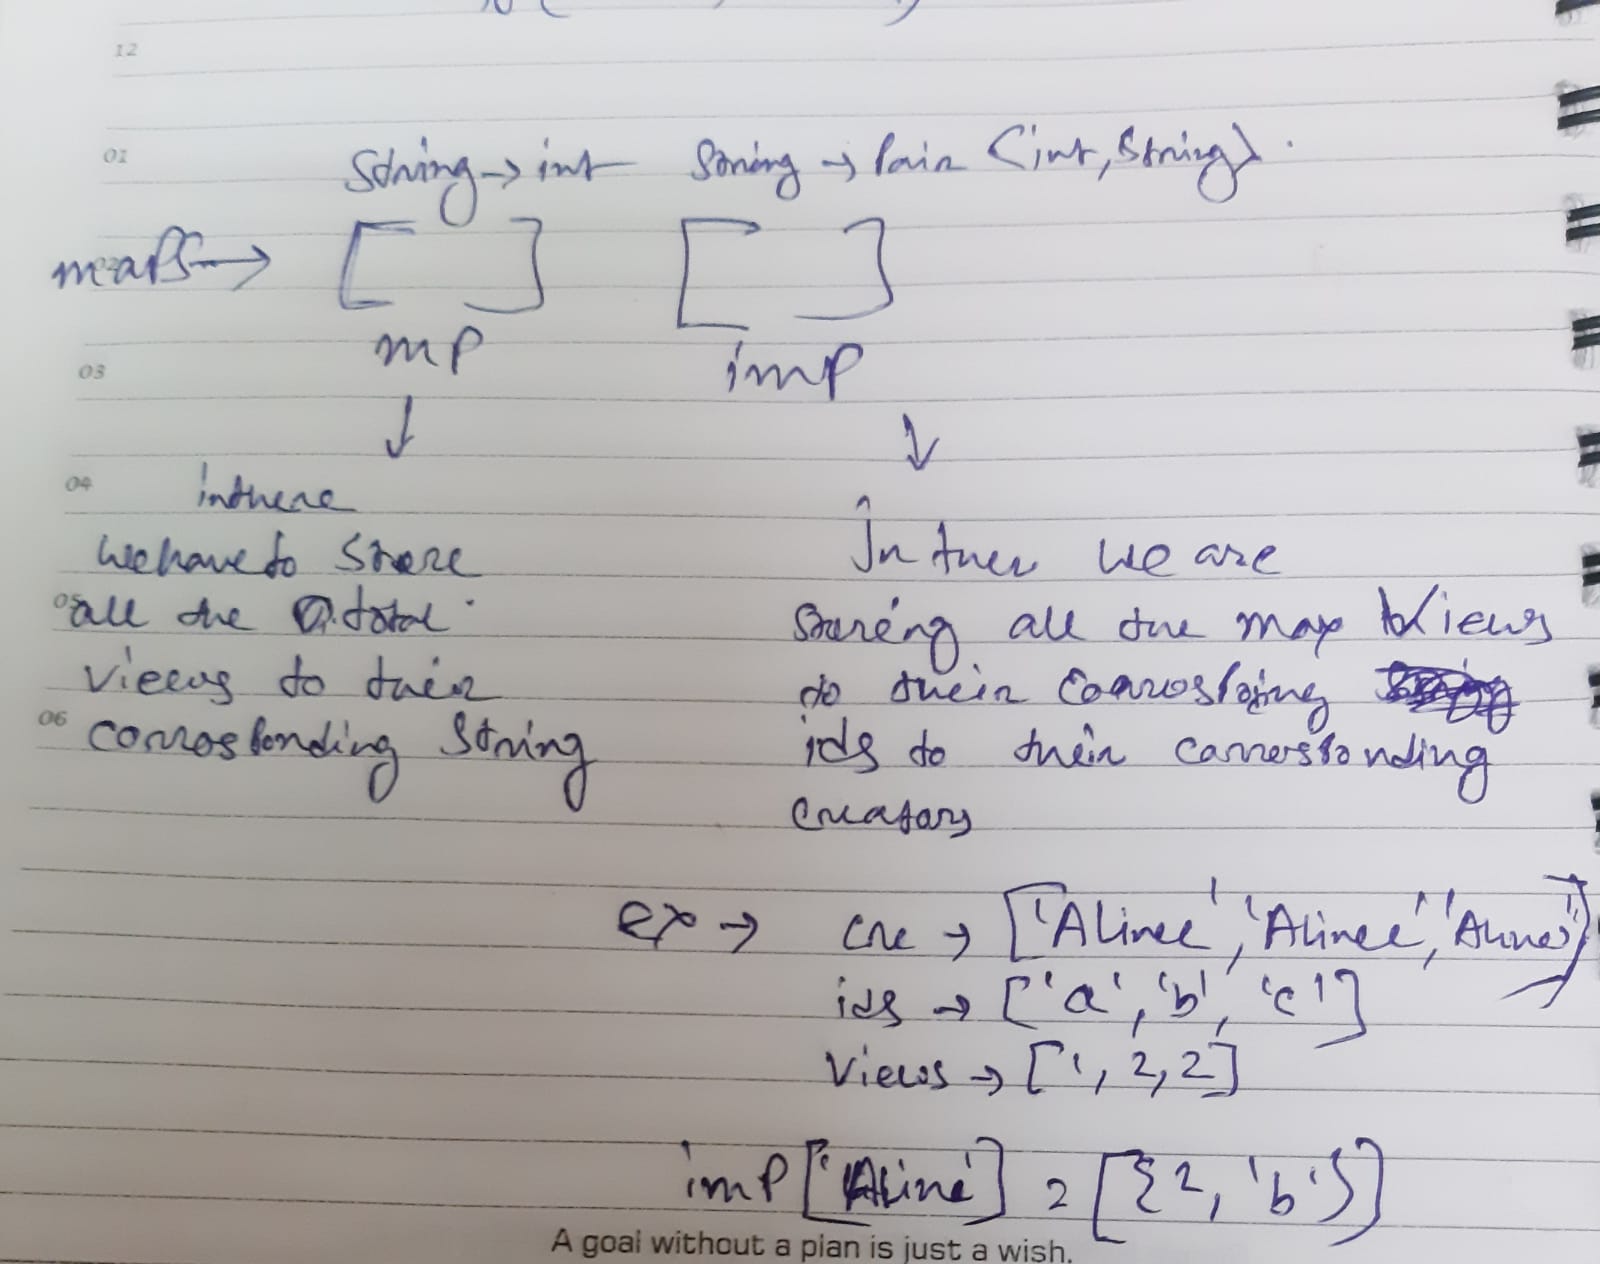 12
01
String → int String → Pair <int, String>.
maps →
mp imp
03
04 in there
we have to store
05 all the total
views to their
06 corrosponding String
In there we are
storing all the max views
to their
ids to their corresponding
creators
ex → cre → ['Alince', 'Alince', 'Aline']
ids → ['a', 'b', 'c']
Views → [1, 2, 2]
imp ['Aline'] = [{2, 'b'}]
A goal without a plan is just a wish.